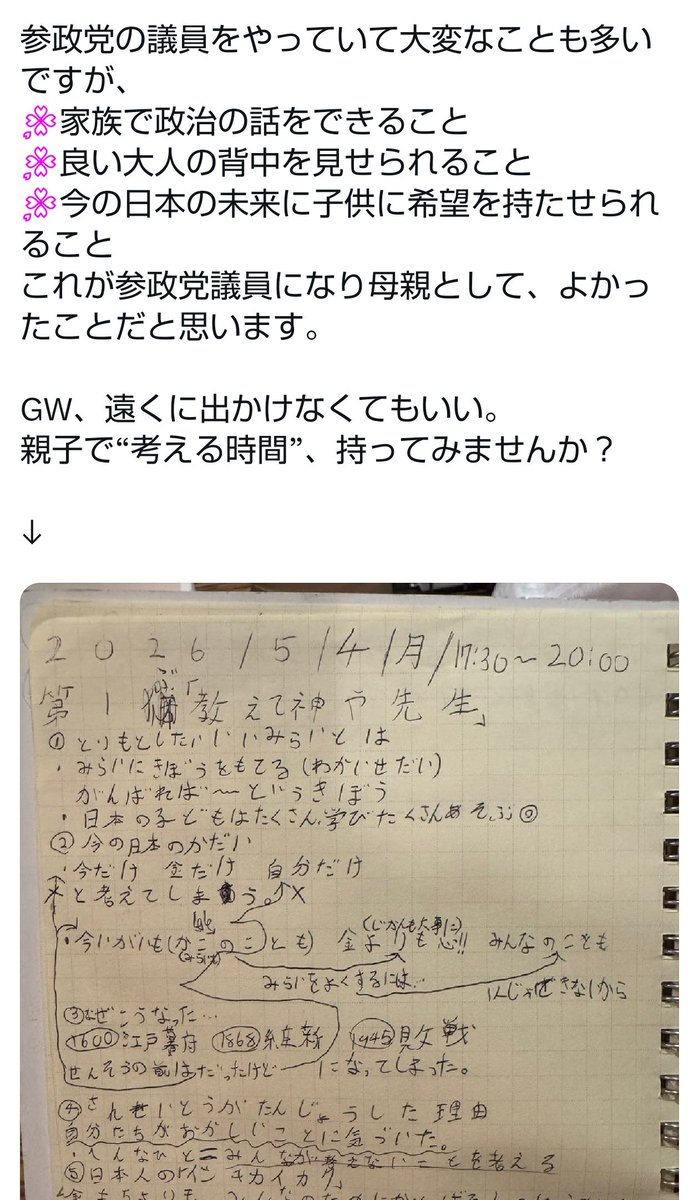 参政党の議員をやっていて大変なことも多い
ですが、
家族で政治の話をできること
良い大人の背中を見せられること
今の日本の未来に子供に希望を持たせられ
ること
これが参政党議員になり母親として、よかっ
たことだと思います。
GW、遠くに出かけなくてもいい。
親子で“考える時間”、持ってみませんか？
↓
2026/5/4/月/17:30～20:00
第1 ぶ「教えて神や先生」
① とりもどしたい いみらいとは
・みらいにきぼうをもてる(わかいせだい)
がんばれば〜というきぼう
・日本の子どもはたくさん学びたくさんあそぶ
② 今の日本のかだい
・今だけ 金だけ 自分だけ
と考えてしまう。×
(じかんも大事に)
・今いがいも(かこのことも) 金よりも心!! みんなのことも
(みらい)
みらいをよくするには…
1人じゃできないから
③なぜこうなった…
1600 江戸幕府 1868 維新 1945 敗戦
せんそうの前はだったけど になってしまった。
④さんせいとうがたんじょうした理由
自分たちがおかしいことに気づいた。
・へんなひと＝みんなが考えないことを考える
⑤日本人の チカイカタ